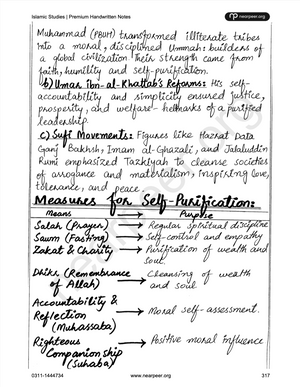 Islamic Studies | Premium Handwritten Notes
nearpeer.org
Muhammad (PBUH) transformed illiterate tribes
into a moral, disciplined Ummah: builders of
a global civilization. Their strength came from
faith, humility and self-purification.
b) Umar ibn-al-Khattab's Reforms: His self-
accountability and simplicity ensured justice,
prosperity, and welfare - hallmarks of a purified
leadership.
c) Sufi Movements: Figures like Hazrat Data
Ganj Bakhsh, Imam al-Ghazali, and Jalaluddin
Rumi emphasized Tazkiyah to cleanse societies
of arrogance and materialism, inspiring love,
tolerance, and peace.
Measures for Self-Purification:
Means → Purpose
Salah (Prayer) → Regular spiritual discipline
Sawm (Fasting) → Self-control and empathy
Zakat & Charity → Purification of wealth and
soul.
Dhikr (Remembrance → Cleansing of wealth
of Allah) and soul
Accountability &
Reflection → Moral self-assessment.
(Muhassaba)
Righteous → Positive moral influence
Companionship
(Suhaba)
0311-1444734 www.nearpeer.org 317